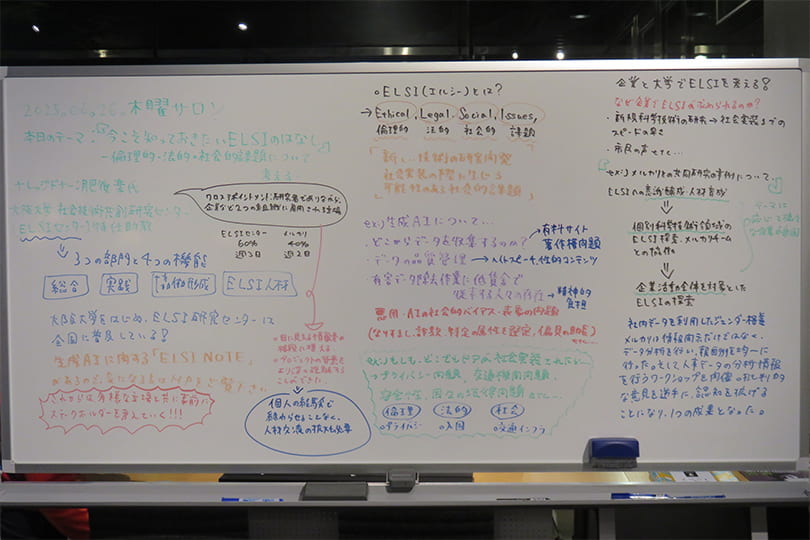 2025.06.26. 木曜サロン
本日のテーマ:「今こそ知っておきたいELSIのはなし」
ー倫理的・法的・社会的課題について
考える
ナレッジドナー:肥後楽氏
大阪大学 社会技術共創研究センター
ELSIセンター)特任助教
クロスアポイントメント:研究者でありながら、
企業など2つの
ELSIセンター メルカリ
60% 40%
週3日 週2日
→3つの部門と4つの機能
総合 実践 協働形成 ELSI人材
大阪大学をはじめ、ELSI研究センターは
全国に普及している!
生成AIに関する「ELSI NOTE」
があるので、気になる方は
これからは多様な支援と共に事前に
ステークホルダーを
目に見える情報量の
プロジェクトの背景を
ことができた。
個人の経験で
終わらせることなく、
人材交流の拡大も必要
○ELSI(エルシー)とは?
→Ethical, Legal, Social, Issues,
倫理的 法的 社会的 課題
「新しい技術の研究開発
社会実装の際に生じる
可能性のある社会的な課題」
ex)生成AIについて...
・どこからデータを収集するのか?→有料サイト
著作権問題
・データの品質管理→ヘイトスピーチ、性的コンテンツ
・有害データ除去作業に低賃金で
従事する人々の存在→精神的
負担
悪用・AIの社会的バイアス・差別の問題
(なりすまし、詐欺、特定の属性を設定、偏見の助長)
ex)もしも、どこでもドアが社会実装されたら...
→プライバシー問題、交通機関問題、
安全性、国々の法律問題
倫理 法的 社会
○プライバシー ○入国 ○交通インフラ
企業と大学でELSIを考える!
なぜ企業でELSIが求められるのか?
・新規科学技術の研究→社会実装までの
スピードの早さ
・市民の声
ex)メルカリとの共同研究の事例について、
ELSIへの意識醸成・人材育成
個別科学技術領域の
ELSI探索、メルカリチーム
との協働
企業活動全体を対象とした
ELSIの探索
テーマに
応じて
社内データを利用したジェンダー格差
メルカリは情報開示だけではなく、
データ分析を行い、
行った。そして人事データの分析情報
を行うワークショップを開催。
な意見を選手に、認知を拡げる
ことになり、1つの成果となった。